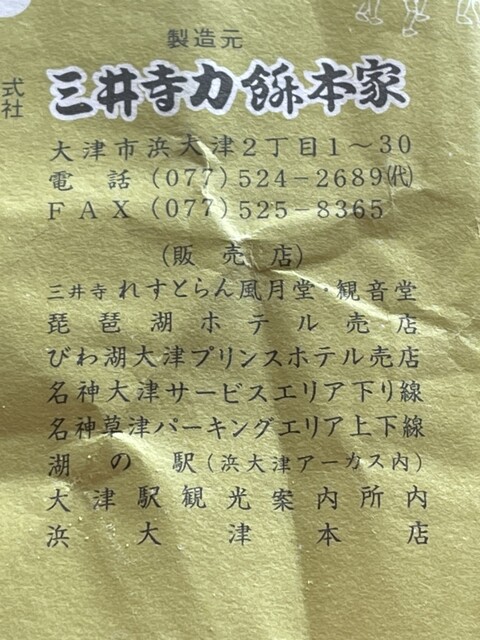 製造元
式
社
三井寺力餅本家
大津市浜大津2丁目1~30
電話(077)524-2689㈹
FAX(077)525-8365
(販売店)
三井寺れすとらん風月堂・観音堂
琵琶湖ホテル売店
びわ湖大津プリンスホテル売店
名神大津サービスエリア下り線
名神草津パーキングエリア上下線
湖の駅(浜大津アーカス内)
大津駅観光案内所内
浜大津本店